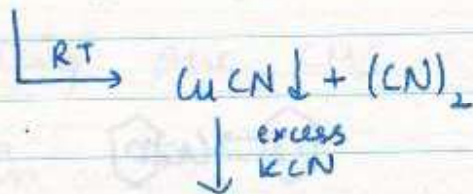 RT
CuCN↓ + (CN)₂
excess
KCN